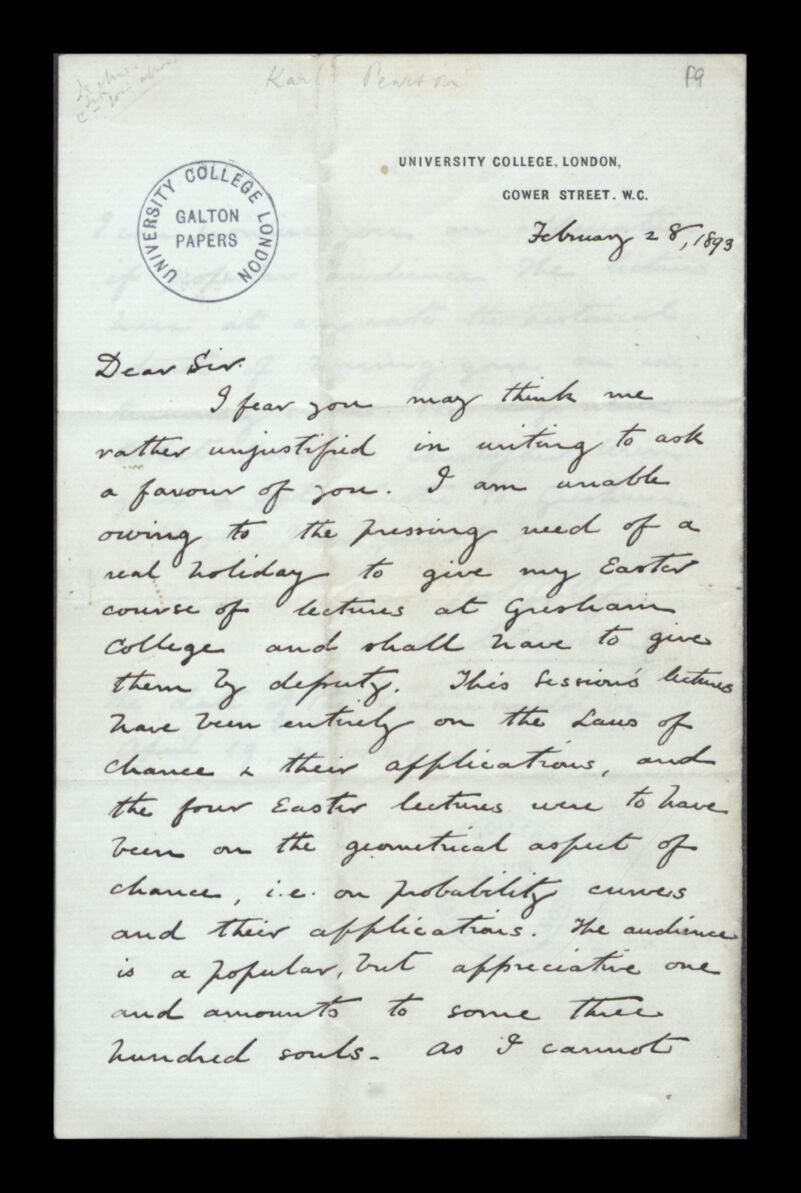 Karl Pearson
f9
UNIVERSITY COLLEGE LONDON
GALTON
PAPERS
UNIVERSITY COLLEGE, LONDON,
GOWER STREET. W.C.
February 28, 1893
Dear Sir.
I fear you may think me
rather unjustified in writing to ask
a favour of you. I am unable
owing to the pressing need of a
real holiday to give my Easter
course of lectures at Gresham
College and shall have to give
them by deputy. This Session's lectures
have been entirely on the Laws of
chance & their applications, and
the four Easter lectures were to have
been on the geometrical aspect of
chance, i.e. on probability curves
and their applications. The audience
is a popular, but appreciative one
and amounts to some three
hundred souls. As I cannot